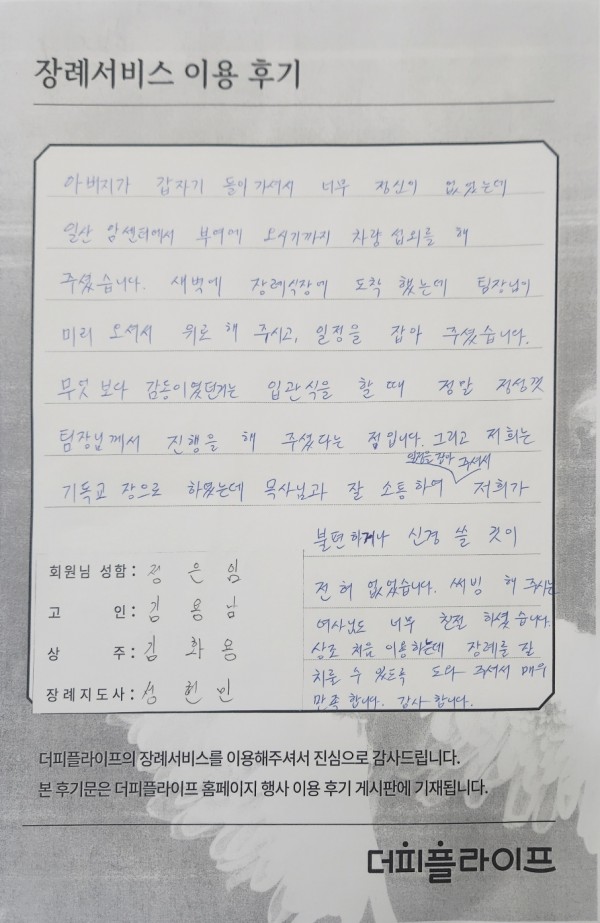 장례서비스 이용 후기
아버지가 갑자기 돌아가셔서 너무 정신이 없었는데
일산 암센터에서 부여에 오시기까지 차량 섭외를 해
주셨습니다. 새벽에 장례식장에 도착 했는데 팀장님이
미리 오셔서 위로 해 주시고, 일정을 잡아 주셨습니다.
무엇 보다 감동이였던거는 입관식을 할 때 정말 정성껏
팀장님께서 진행을 해 주셨다는 점입니다. 그리고 저희는
일정을 잡아 주셔서
기독교 장으로 하였는데 목사님과 잘 소통하여 저희가
불편하거나 신경 쓸 것이
전혀 없었습니다. 써빙 해 주시는
여사님도 너무 친절 하셨습니다.
상조 처음 이용하는데 장례를 잘
치룰 수 있도록 도와 주셔서 매우
만족 합니다. 감사 합니다.
회원님 성함: 정은임
고 인: 김용남
상 주: 김화용
장례지도사: 성헌민
더피플라이프의 장례서비스를 이용해주셔서 진심으로 감사드립니다.
본 후기문은 더피플라이프 홈페이지 행사 이용 후기 게시판에 기재됩니다.
더피플라이프